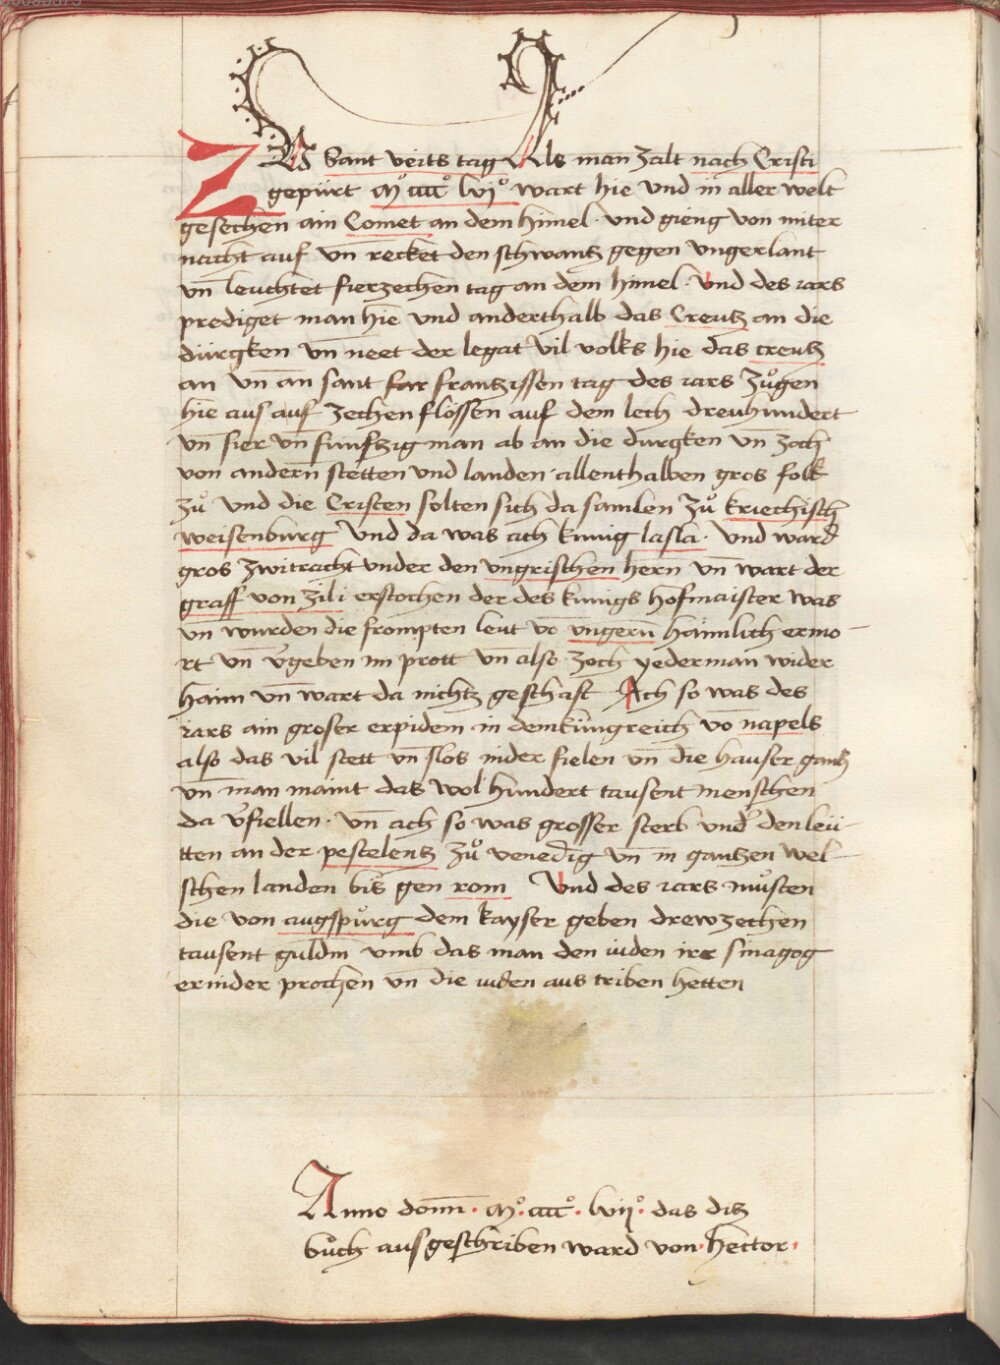 Zu Sant veits tag Als man zalt nach Cristi
gepürt mº ccccº lvjº wart hie und in aller welt
gesechen ain Comet an dem himel · und gieng von miter
nacht auf un̄ recket den schwantz gegen ungerlant
un̄ leuchtet fierzechen tag an dem himel · Und des iars
prediget man hie und anderthalb das Creutz an die
dürgken un̄ neet der legat vil volks hie das creutz
an un̄ an sant far frantzissen tag des iars zůgen
hie aus auf zechen flössen auf dem lech dreuhundert
un̄ fier un̄ funftzig man ab an die durgken un̄ zoch
von andern stetten und landen · allenthalben gros folk
zů und die Cristen solten sich da samlen zů kriechisch
weisenburg Und da was ach kunig lasla · und ward
gros zwitracht under den ungrischen hern un̄ wart der
graff von zili erstochen der des kunigs hofmaister was
un̄ wurden die frompten leut vō ungern̄ haimlich ermo-
rt un̄ v̄geben im prott un̄ also zoch yederman wider
haim un̄ wart da nichtz geschaft Ach so was des
iars ain groser erpidem in dem küngreich vō napels
also das vil stett un̄ slos nider fielen un̄ die hauser gantz
un̄ man maint das wol hundert tausent menschen
da v̄fiellen · un̄ ach so was grosser sterb und̄ den leü-
tten an der pestelentz zů venedig un̄ in gantzen wel-
schen landen bis gen rom Und des iars můsten
die von augspůrg dem kayser geben drewzechen
tausent guldin umb das man den iuden irer sinagog
ernider prochen un̄ die iuden aus triben hetten
Anno domī · mº · ccccº · lvijº · das ditz
bůch ausgeschriben ward von · hector ·